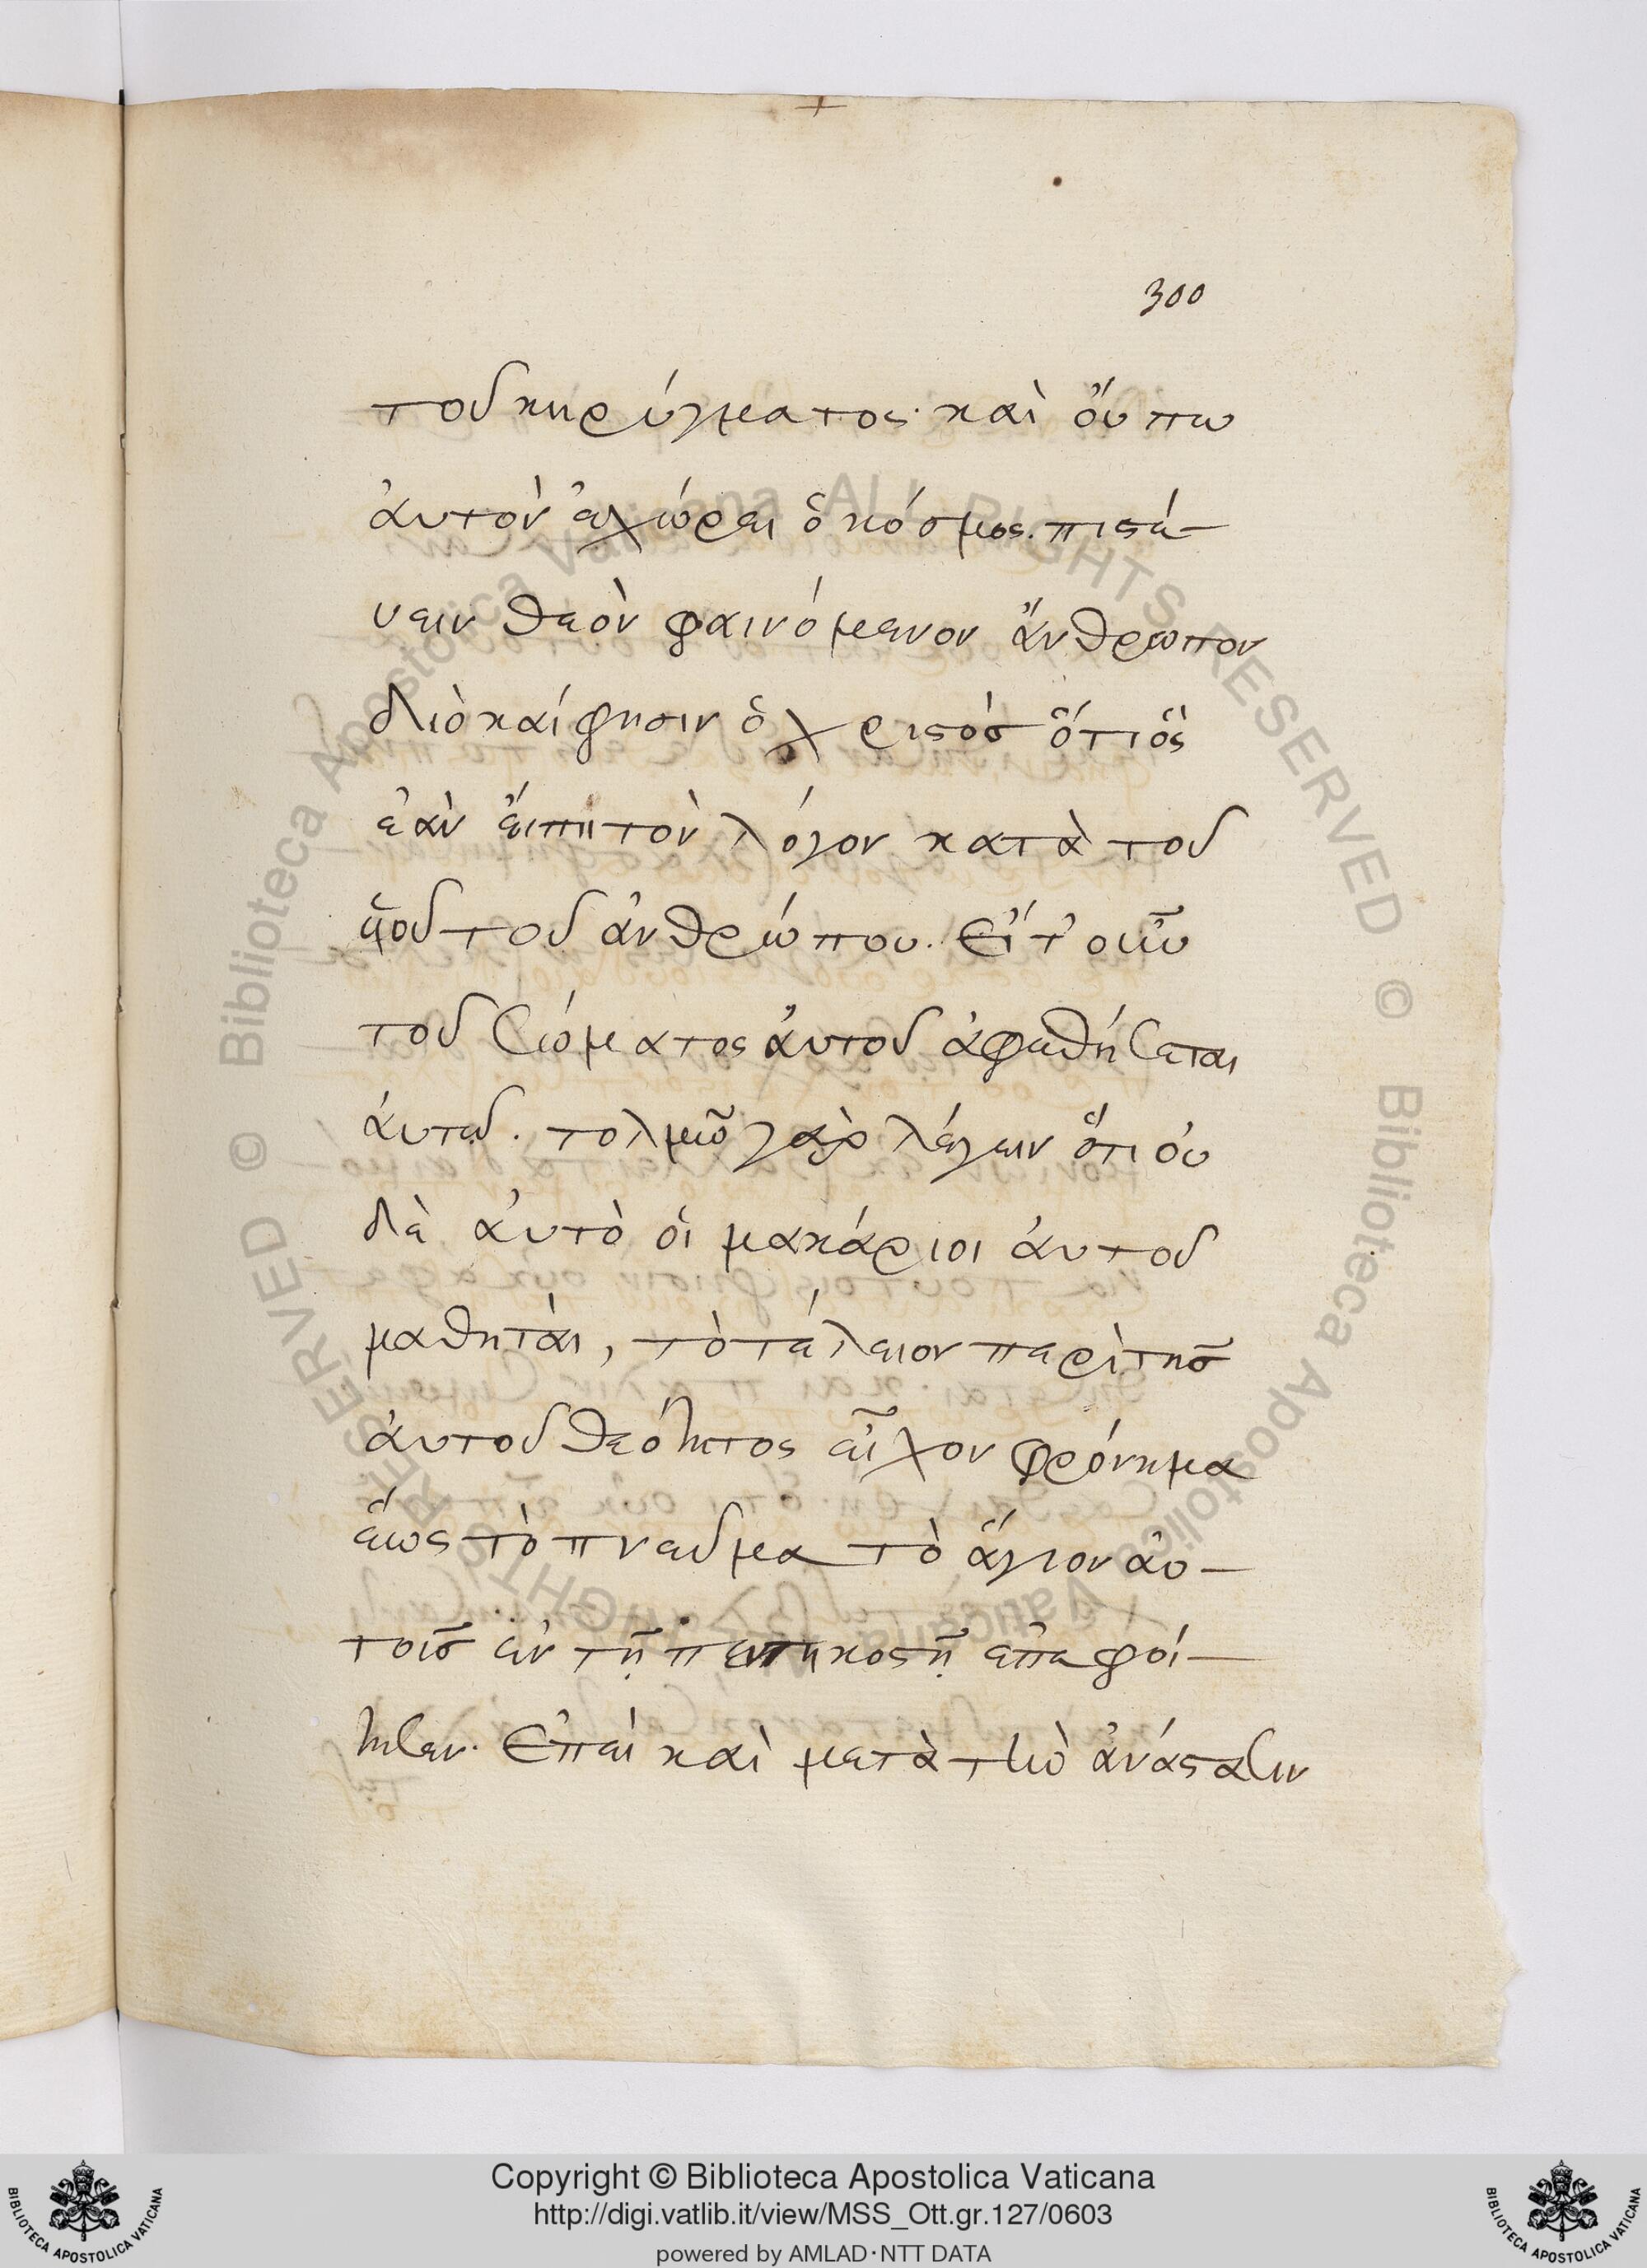 300
τοῦ κηρύγματος· καὶ ὄυπω
ἀυτὸν ἐχώρει ὁ κόσμος. πιστέ-
υειν θεὸν φαινόμενον ἄνθρωπον
διὸ καί φησιν ὁ χριστὸσ ὅτι ὃς
ἐὰν ἔιπη τὸν λόγον κατὰ τοῦ
υἱοῦ τοῦ ἀνθρώπου. Εἴτ' οὖν
τοῦ σώματος ἀυτοῦ ἀφεθήσεται
ἀυτῶ. τολμῶ γὰρ λέγειν ὅτι ὀυ
δὲ ἀυτὸ ὁι μακάριοι ἀυτοῦ
μαθητὰι, τὸ τέλειον περὶ τῆσ
ἀυτοῦ θεότητος εἶχον φρόνημα
ἕως τὸ πνεῦμα τὸ ἅγιον ἀυ-
τοῖσ ἐν τῇ πεντηκοστῇ ἐπεφοί-
τησεν. Ἐπεὶ καὶ μετὰ τὴν ἀνάστασιν
Copyright © Biblioteca Apostolica Vaticana
http://digi.vatlib.it/view/MSS_Ott.gr.127/0603
powered by AMLAD·NTT DATA
BIBLIOTECA APOSTOLICA VATICANA
BIBLIOTECA APOSTOLICA VATICANA
© Biblioteca Apostolica Vaticana ALL RIGHTS RESERVED © Biblioteca Apostolica Vaticana ALL RIGHTS RESERVED